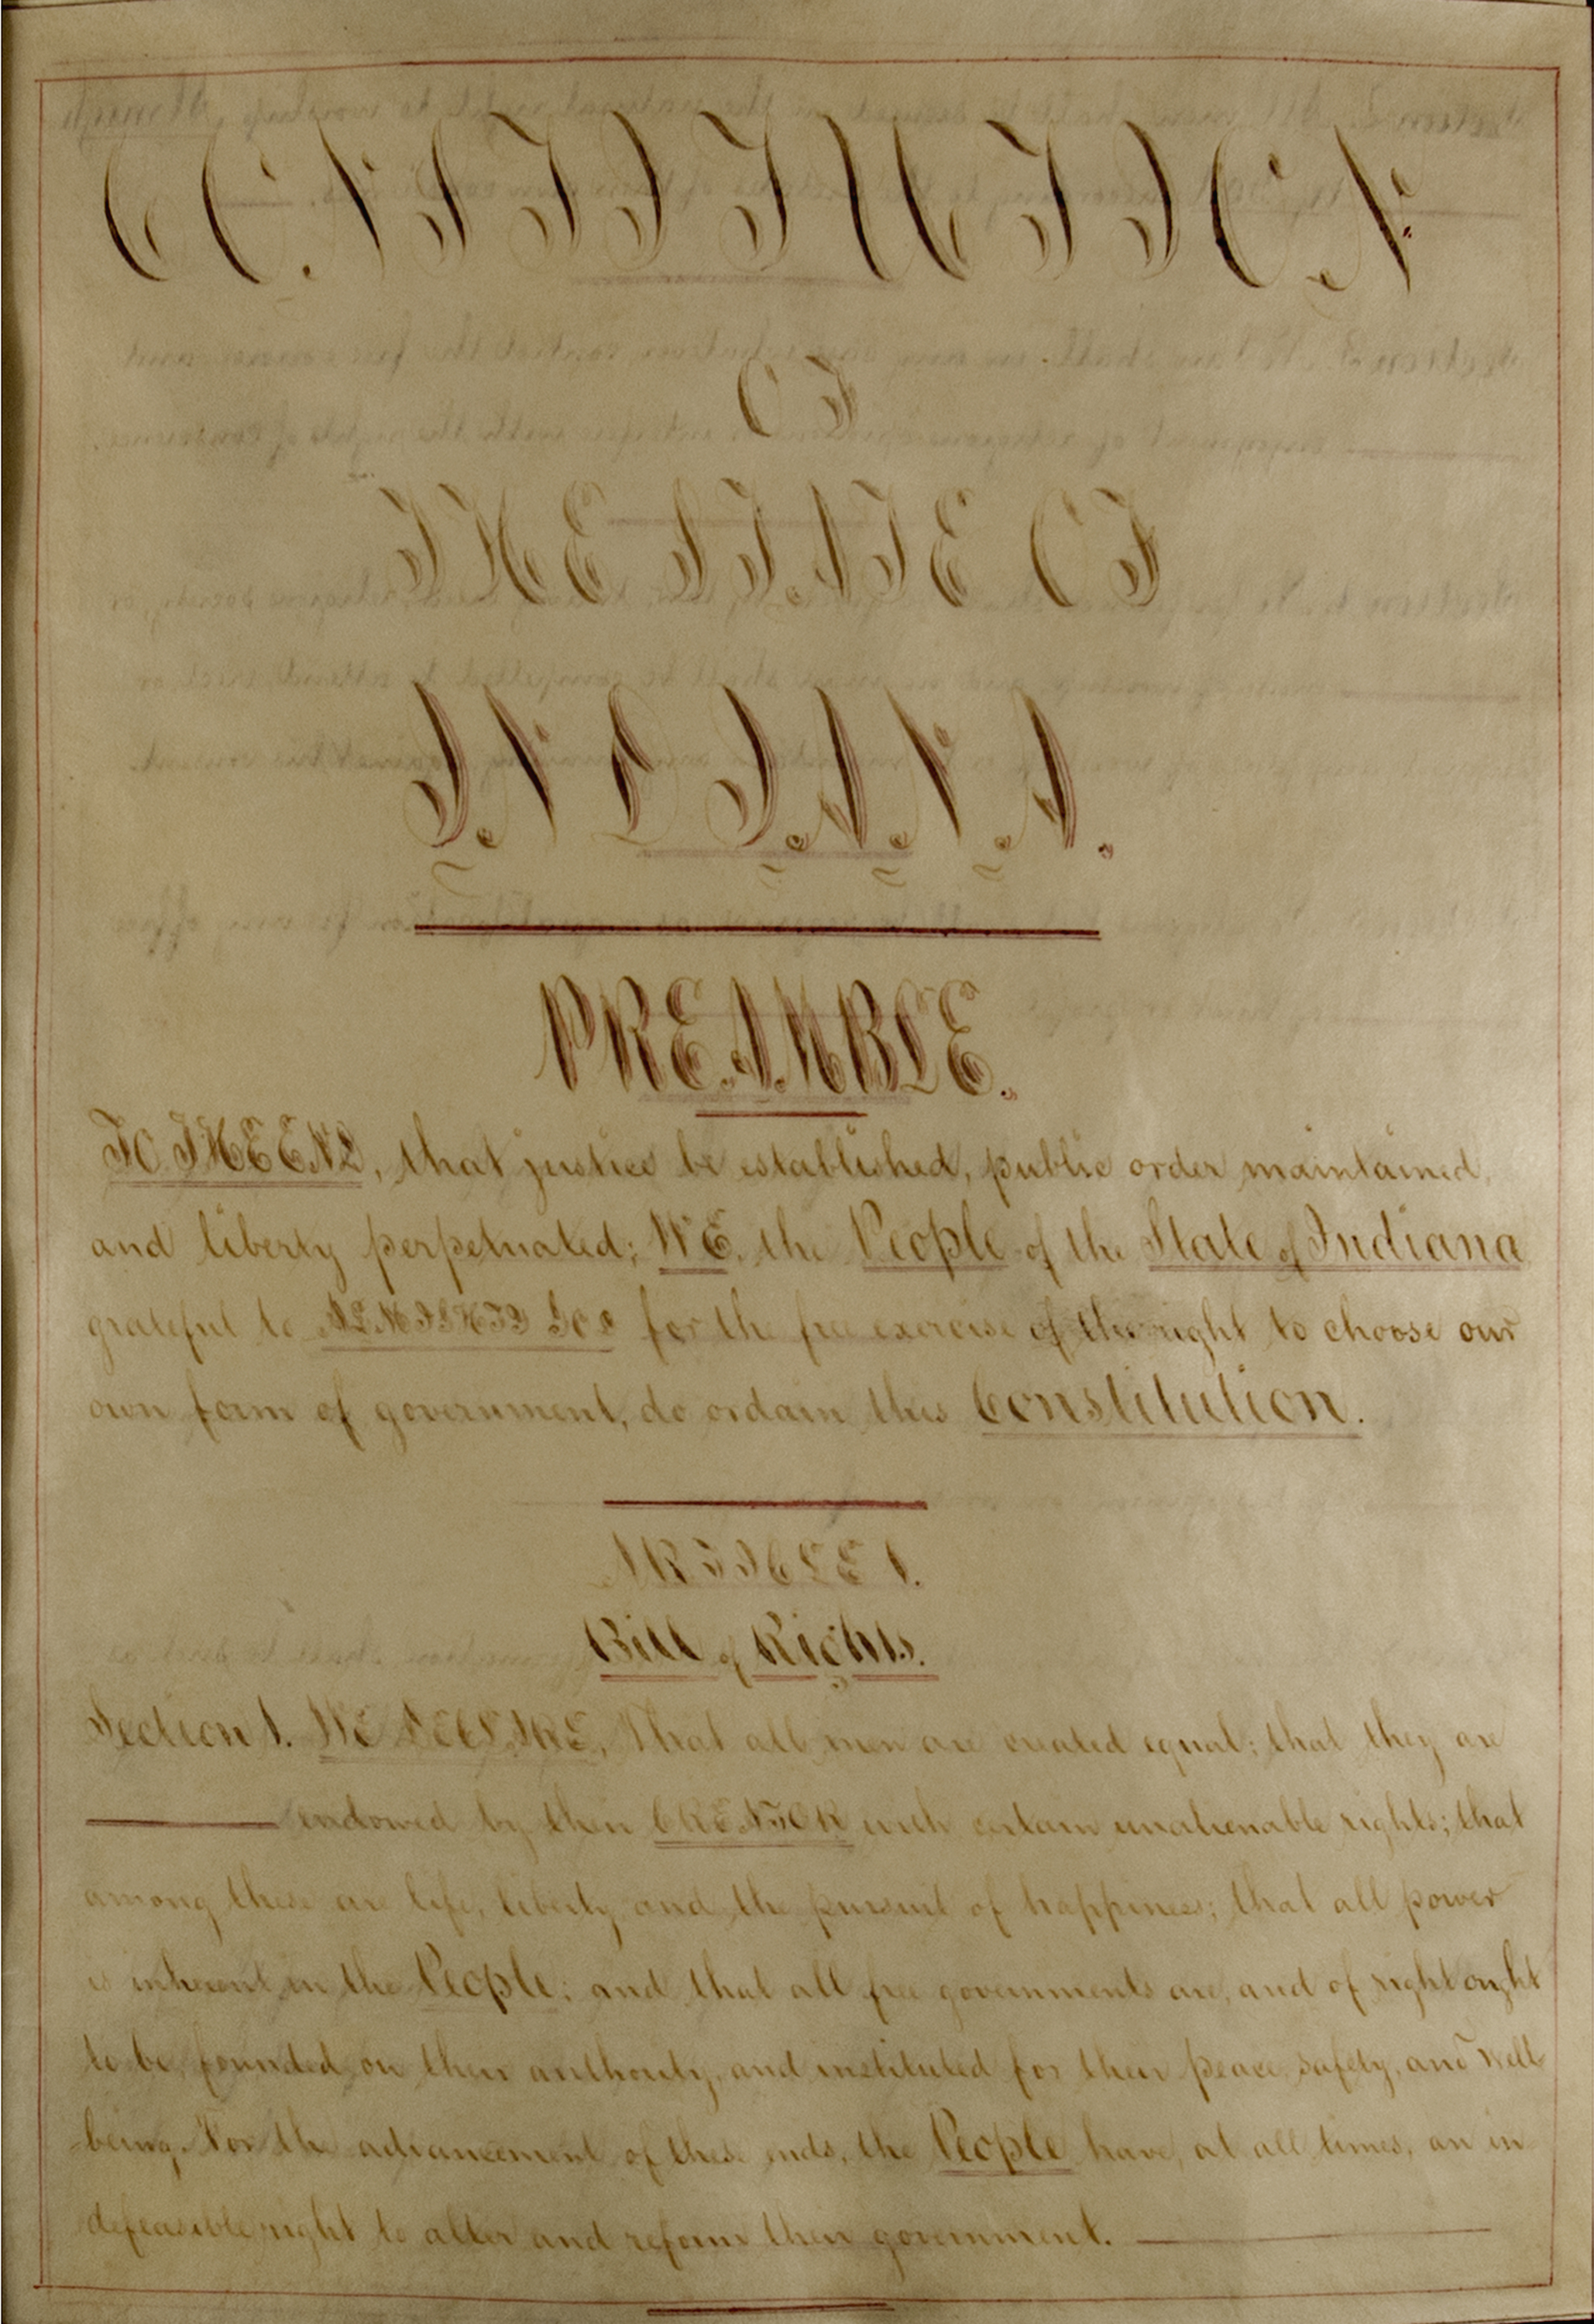 CONSTITUTION
OF
THE STATE OF
INDIANA.
PREAMBLE.
TO THE END, that justice be established, public order maintained,
and liberty perpetuated; WE, the People of the State of Indiana
grateful to ALMIGHTY GOD for the free exercise of the right to choose our
own form of government, do ordain this Constitution.
ARTICLE 1.
Bill of Rights.
Section 1. WE DECLARE, That all men are created equal; that they are
endowed by their CREATOR with certain unalienable rights; that
among these are life, liberty and the pursuit of happiness; that all power
is inherent in the People; and that all free governments are, and of right ought
to be, founded on their authority, and instituted for their peace, safety, and well-
-being. For the advancement of these ends, the People have, at all times, an in
defeasible right to alter and reform their government.